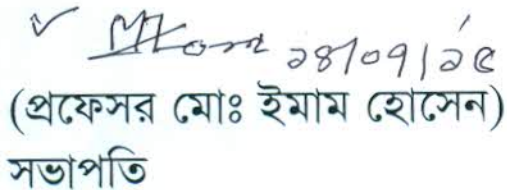 ১৪/০৭/১৫
(প্রফেসর মোঃ ইমাম হোসেন)
সভাপতি